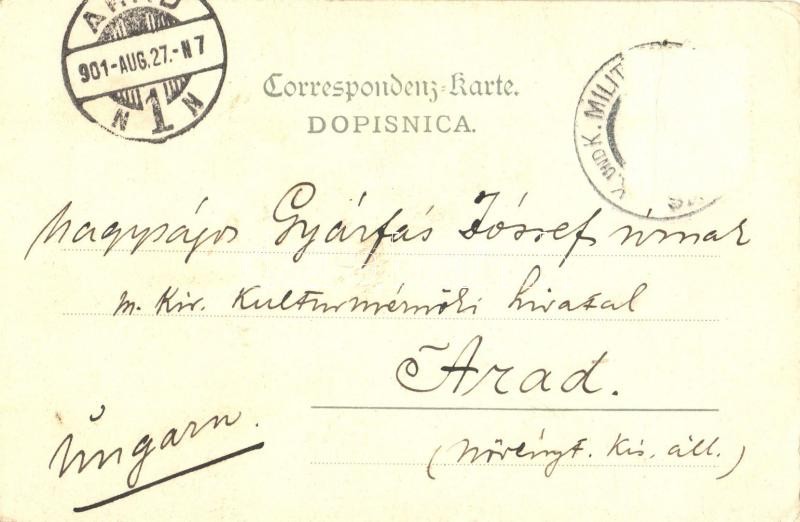 ARAD
901-AUG.27.-N7
N 1 N
Correspondenz-Karte.
DOPISNICA.
K. UND K. MILIT
Nagyságos Gyárfás József úrnak
m. Kir. Kulturmérnöki hivatal
Arad.
Ungarn.
(Növényt. Kis. áll.)